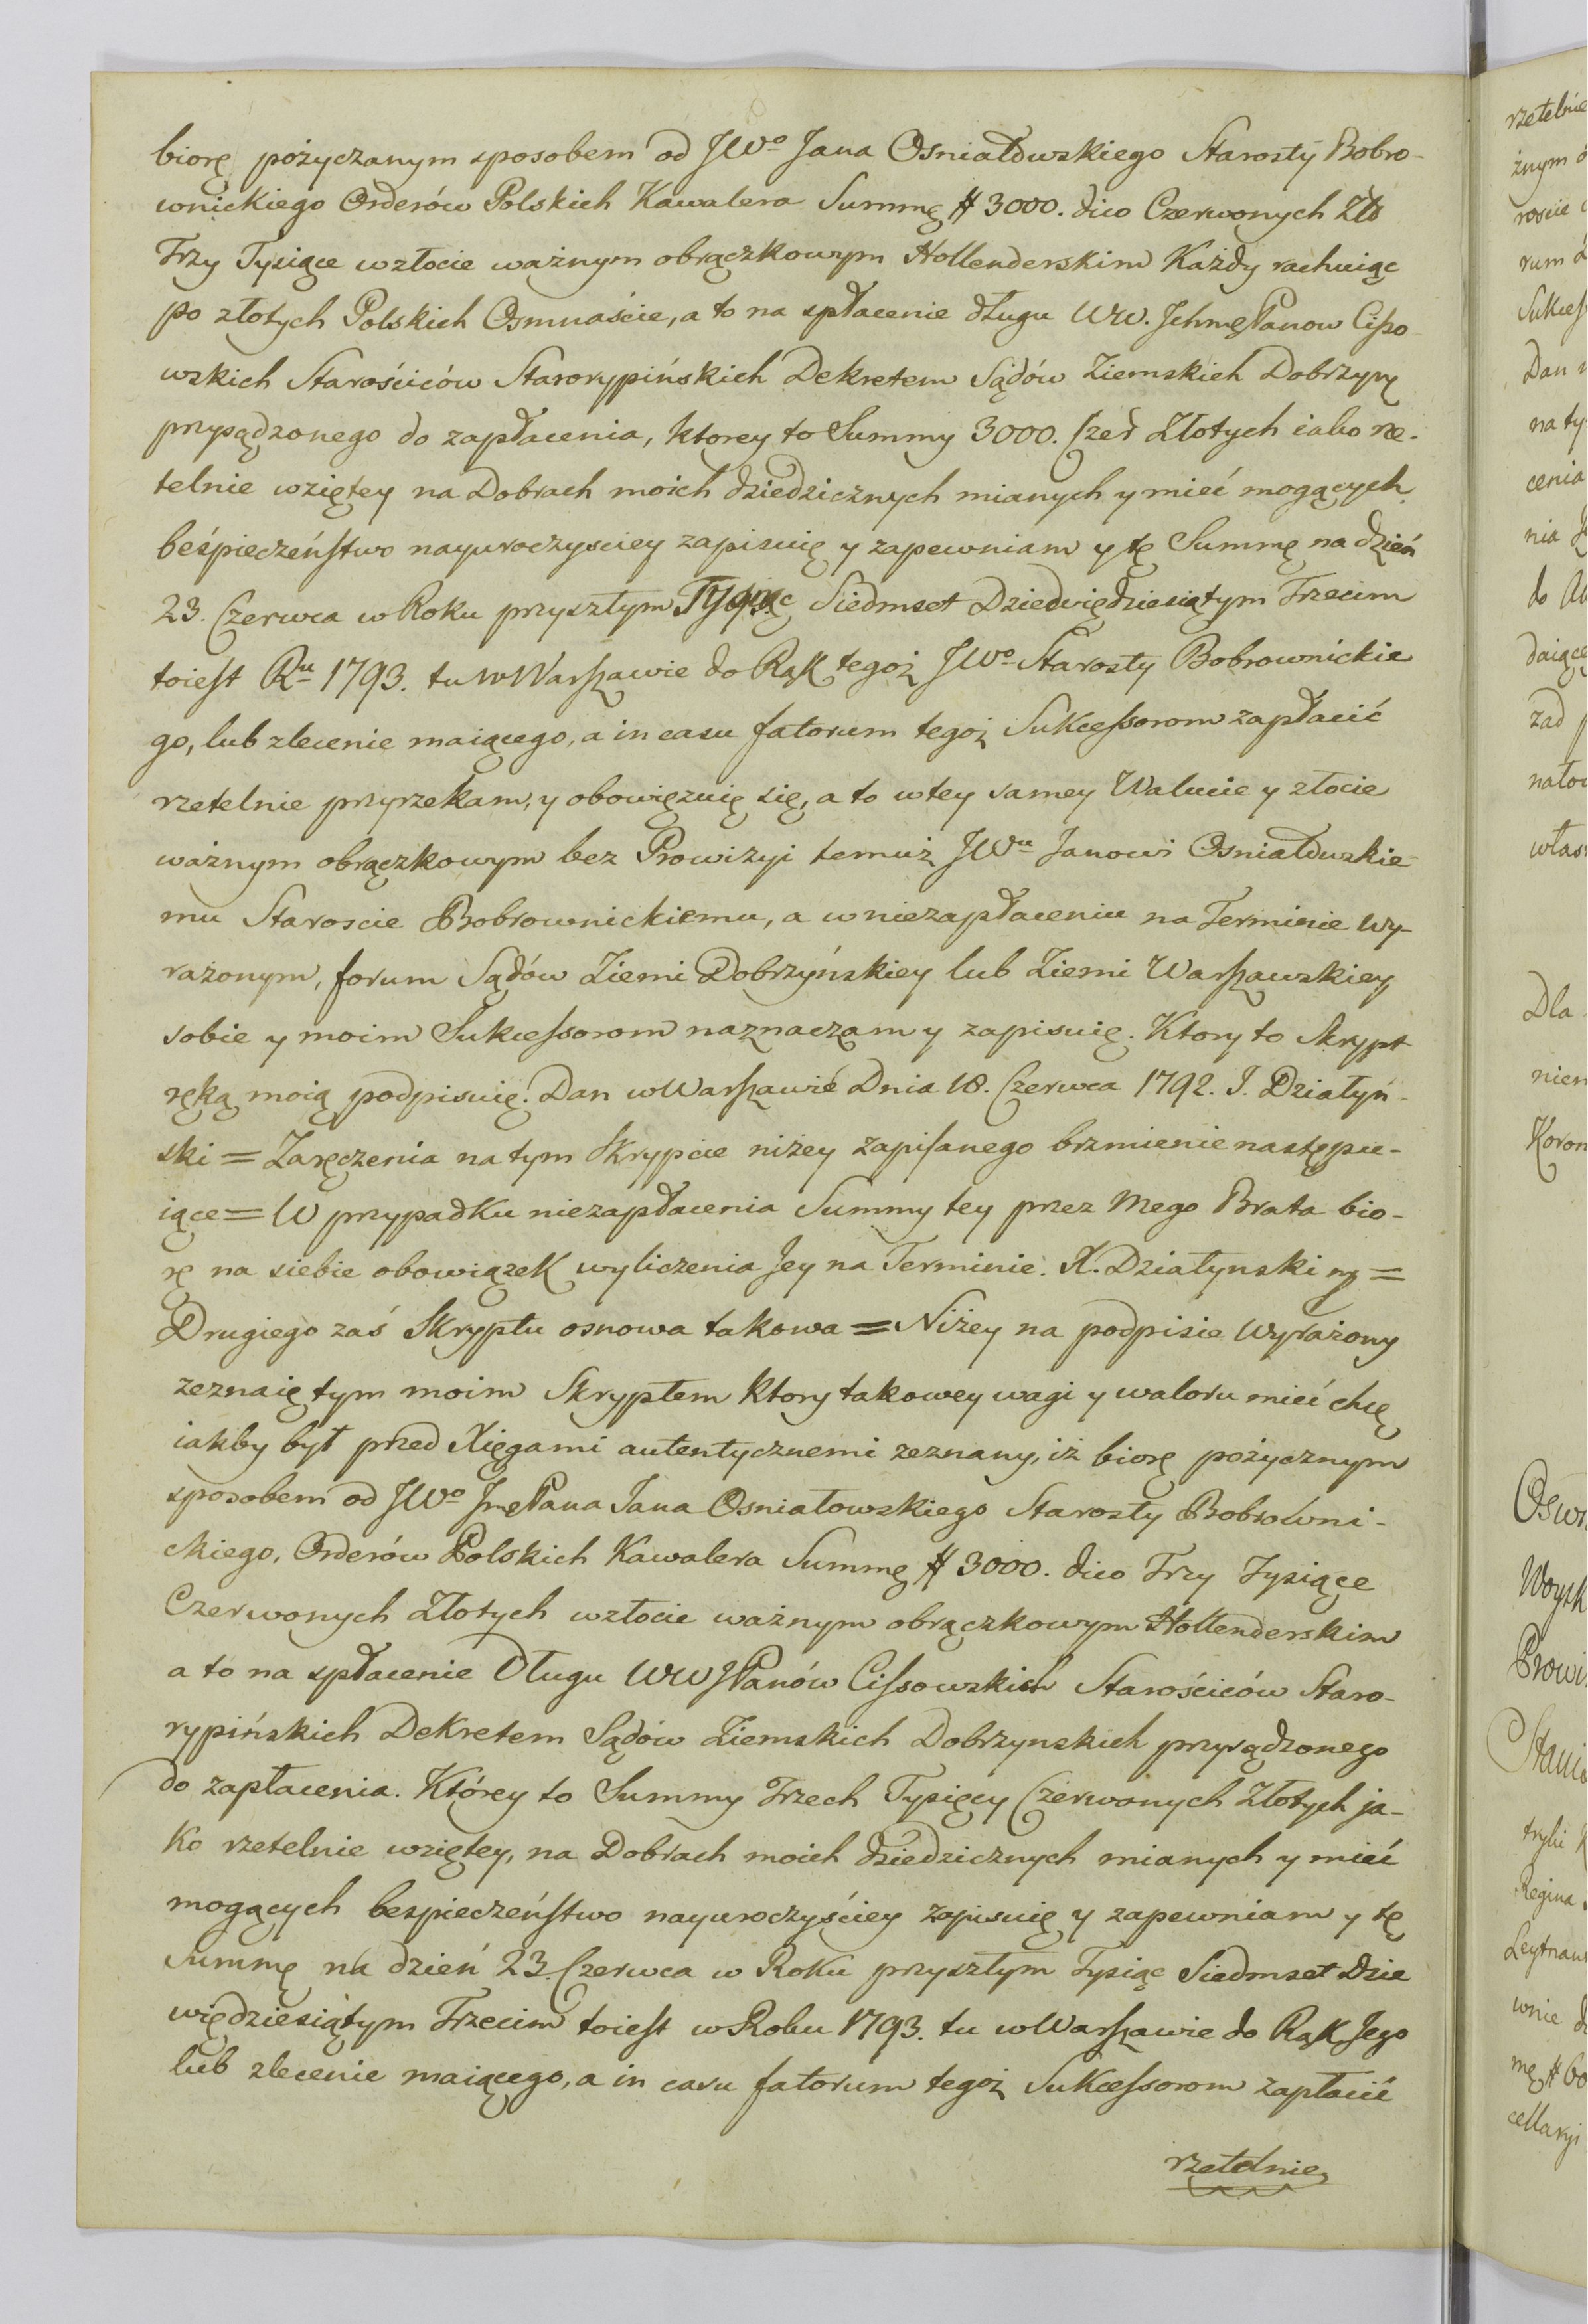 biorę pożyczanym sposobem od JWo Jana Osniałowskiego Starosty Bobro-
wnickiego Orderów Polskich Kawalera Summę # 3000. dico Czerwonych Złł
Trzy Tysiące wzłocie ważnym obrączkowym Hollenderskim Każdy rachuiąc
po złotych Polskich Osmnaście, a to na spłacenie długu WW. Ichmę Panow Cisso-
wskich Starościców Starorypińskich Dekretem Sądów Ziemskich Dobrzyn
przysądzonego do zapłacenia, ktorey to Summy 3000. Czer Złotych iako rze-
telnie wziętey na Dobrach moich dziedzicznych mianych y mieć mogących
beśpieczeństwo nayuroczysciey zapisuię y zapewniam y tę Summę na dzień
23. Czerwca w Roku przyszłym Tysiąc Siedmset Dziedwiędziesiątym Trzecim
toiest Ru 1793. tu w Warszawie do Rąk tegoż JWo Starosty Bobrownickie
go, lub zlecenie maiącego, a in casu fatorum tegoż Sukcessorom zapłacić
rzetelnie przyrzekam, y obowięzuię się, a to wtey samey Walucie y złocie
ważnym obrączkowym bez Prowizyi temuż JWu Janowi Osniałowskie-
mu Staroscie Bobrownickiemu, a w niezapłaceniu na Terminie wy-
rażonym, forum Sądów Ziemi Dobrzyńskiey lub Ziemi Warszawskiey
sobie y moim Sukcessorom naznaczam y zapisuię. Ktory to Skrypt
ręką moią podpisuię. Dan w Warszawie Dnia 18. Czerwca 1792. I. Działyń-
ski = Zaręczenia na tym Skrypcie niżey zapisanego brzmienie następu-
iące = W przypadku niezapłacenia Summy tey przez Mego Brata bio-
rę na siebie obowiązek wyliczenia Jey na Terminie. X. Działynski mp =
Drugiego zaś Skryptu osnowa takowa = Niżey na podpisie wyrażony
zeznaię tym moim Skryptem ktory takowey wagi y waloru mieć chcę
iakby był przed Xięgami autentycznemi zeznany, iż biorę pożycznym
sposobem od JWo Jmę Pana Jana Osniałowskiego Starosty Bobrowni-
ckiego, Orderów Polskich Kawalera Summę # 3000. dico Trzy Tysiące
Czerwonych Złotych wzłocie ważnym obrączkowym Hollenderskim
a to na spłacenie Długu WWJPanów Cissowskich Starościców Staro-
rypińskich Dekretem Sądów Ziemskich Dobrzynskich przysądzonego
do zapłacenia. Którey to Summy Trzech Tysięcy Czerwonych Złotych ja-
ko rzetelnie wziętey, na Dobrach moich dziedzicznych mianych y mieć
mogących bespieczeństwo nayuroczyściey zapisuię y zapewniam y tę
Summę na dzień 23. Czerwca w Roku przyszłym Tysiąc Siedmset Dzie
więdziesiątym Trzecim toiest w Roku 1793. tu w Warszawie do Rąk Jego
lub zlecenie maiącego, a in casu fatorum tegoż Sukcessorom zapłacić
rzetelnie
rzetelnie
żnym
roscie
rum
Dan
na ty
cenia
nia
do
daiące
zad
własn
Dla
niem
Koron
Woysk
Prowi
Stani
Regina
Leytnan
wnie